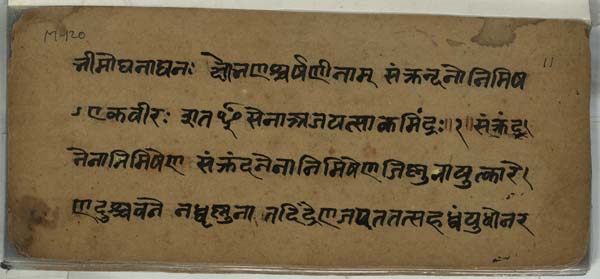 M-120
भीमोघनाघनः क्षोभणश्चर्षणीनाम् संक्रन्दनोनिमिष
11
एकवीरः शतꣳ सेनाअजयत्साकमिंद्रः॥१॥संक्रंद
नेनानिमिषेण संक्रंदनेनानिमिषेणजिष्णुनायुत्कारे
णदुश्च्यवनेनधृष्णुना तदिंद्रेणजयततत्सहध्वंयुधोनर